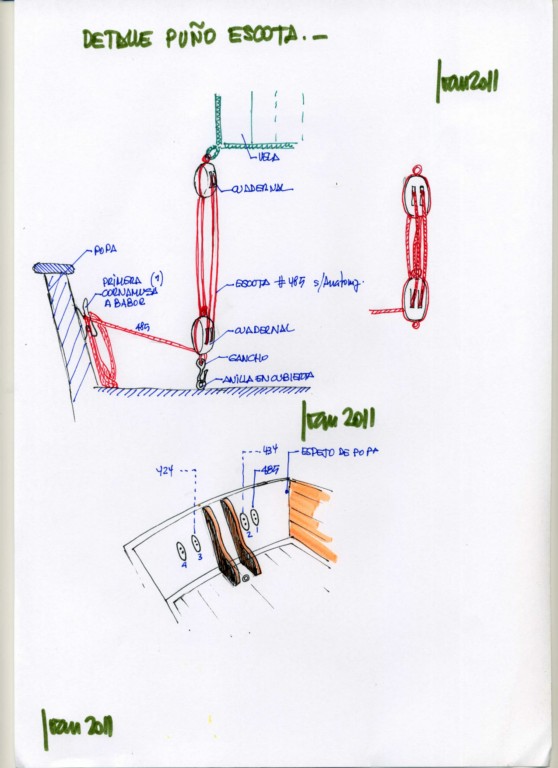 DETALLE PUÑO ESCOTA.-
Iran 2011
VELA
CUADERNAL
POPA
PRIMERA (1)
CORNAMUSA
A BABOR
ESCOTA # 485 s/Anatomy.
485
CUADERNAL
GANCHO
ANILLA EN CUBIERTA
Iran 2011
434
424
485
ESPEJO DE POPA
1
2
3
4
Iran 2011